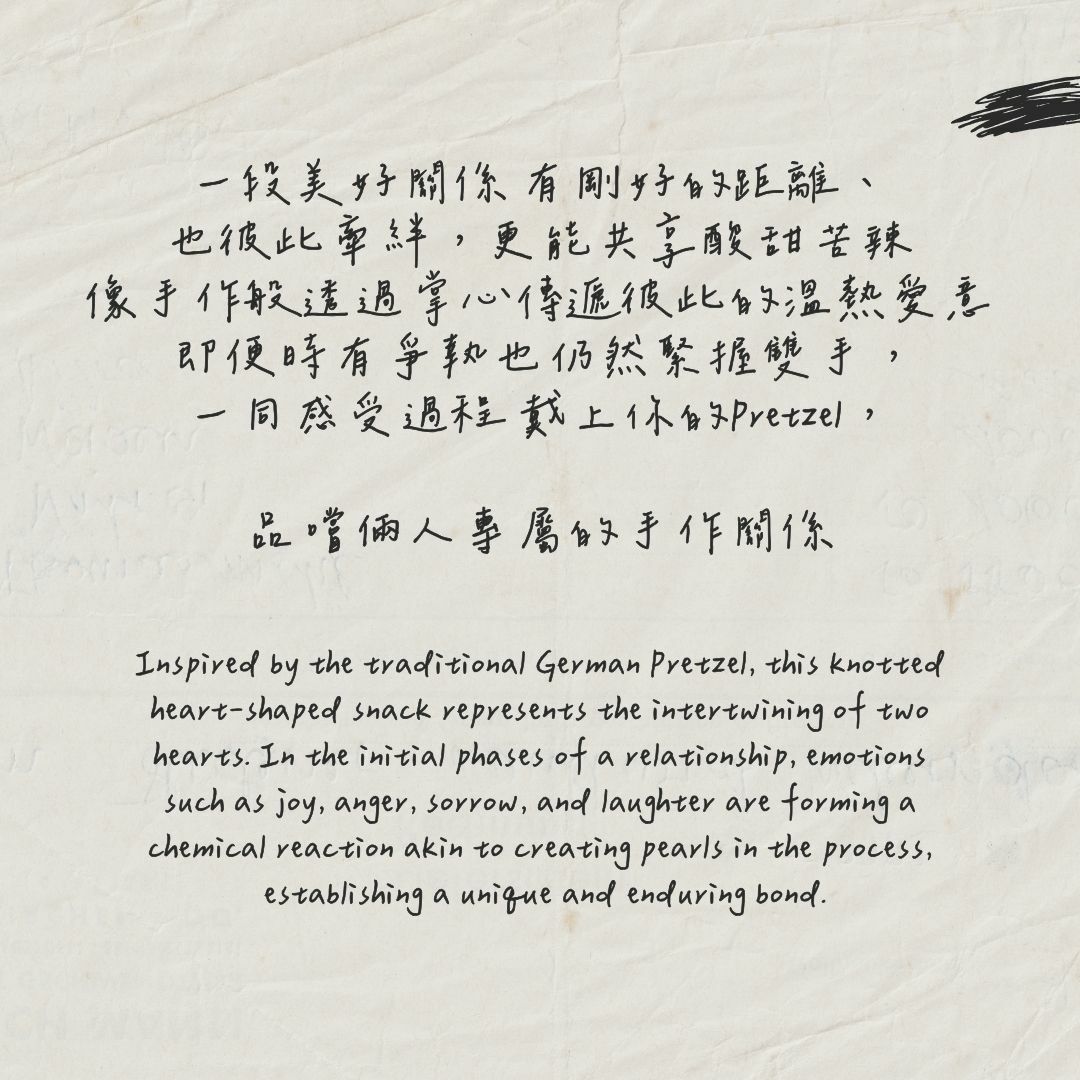 一段美好關係有剛好的距離、
也彼此牽絆，更能共享酸甜苦辣
像手作般透過掌心傳遞彼此的溫熱愛意
即便時有爭執也仍然緊握雙手，
一同感受過程戴上你的Pretzel，
品嚐倆人專屬的手作關係
Inspired by the traditional German Pretzel, this knotted
heart-shaped snack represents the intertwining of two
hearts. In the initial phases of a relationship, emotions
such as joy, anger, sorrow, and laughter are forming a
chemical reaction akin to creating pearls in the process,
establishing a unique and enduring bond.